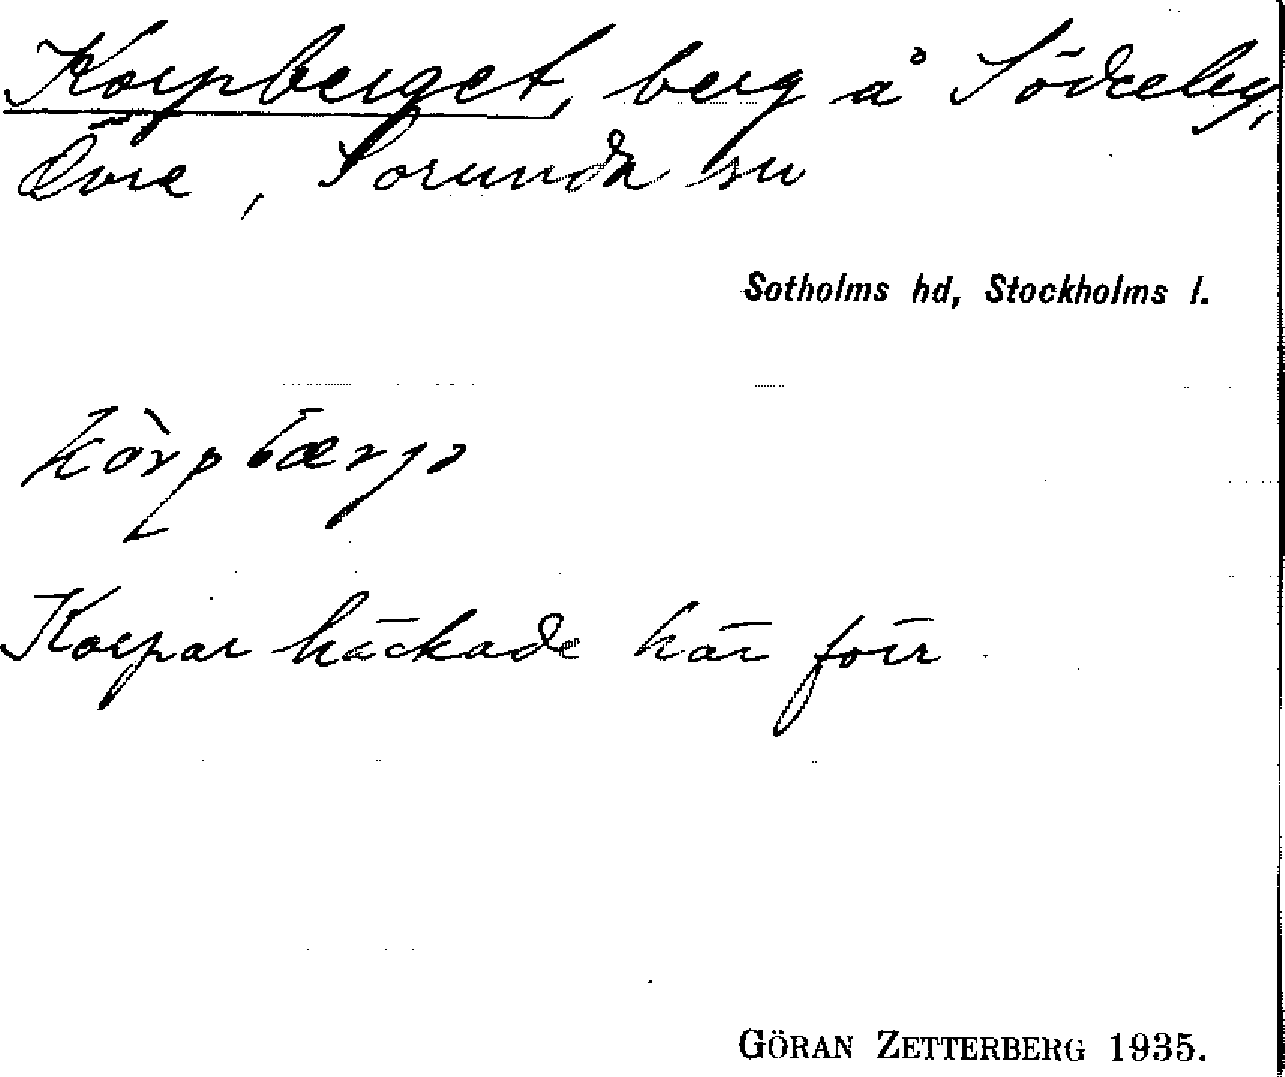 Korpberget, berg å Söderby,
Övre, Sorunda sn
Sotholms hd, Stockholms l.
kòrpbærjə
Korpar häckade här förr
GÖRAN ZETTERBERG 1935.